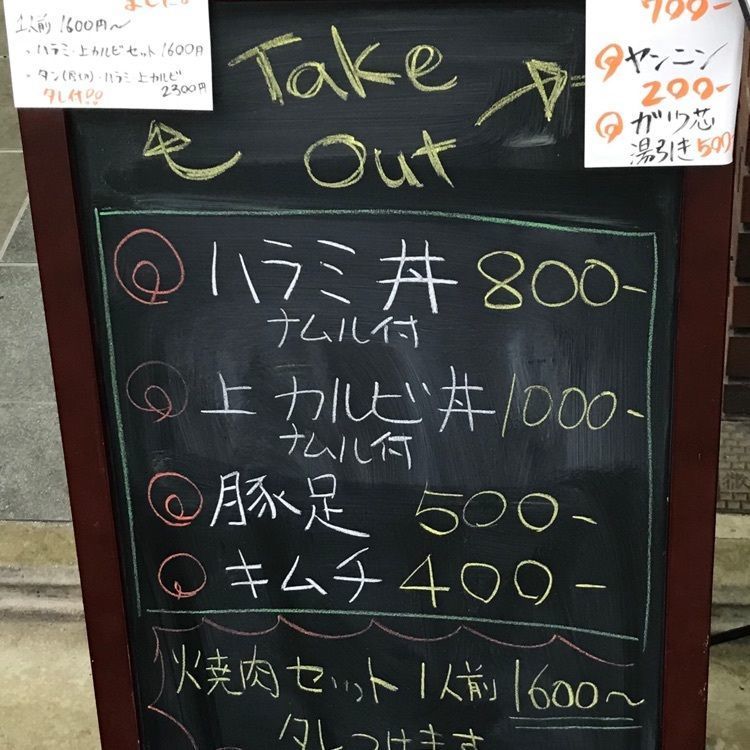 ました。
1人前 1600円〜
・ハラミ・上カルビセット 1600円
・タン(厚切り)・ハラミ・上カルビ
2300円
タレ付!!
700-
ヤンニン
200-
ガツ芯
湯引き 500-
Take
Out
ハラミ丼 800-
ナムル付
上カルビ丼 1000-
ナムル付
豚足 500-
キムチ 400-
焼肉セット 1人前 1600〜
タレつけます